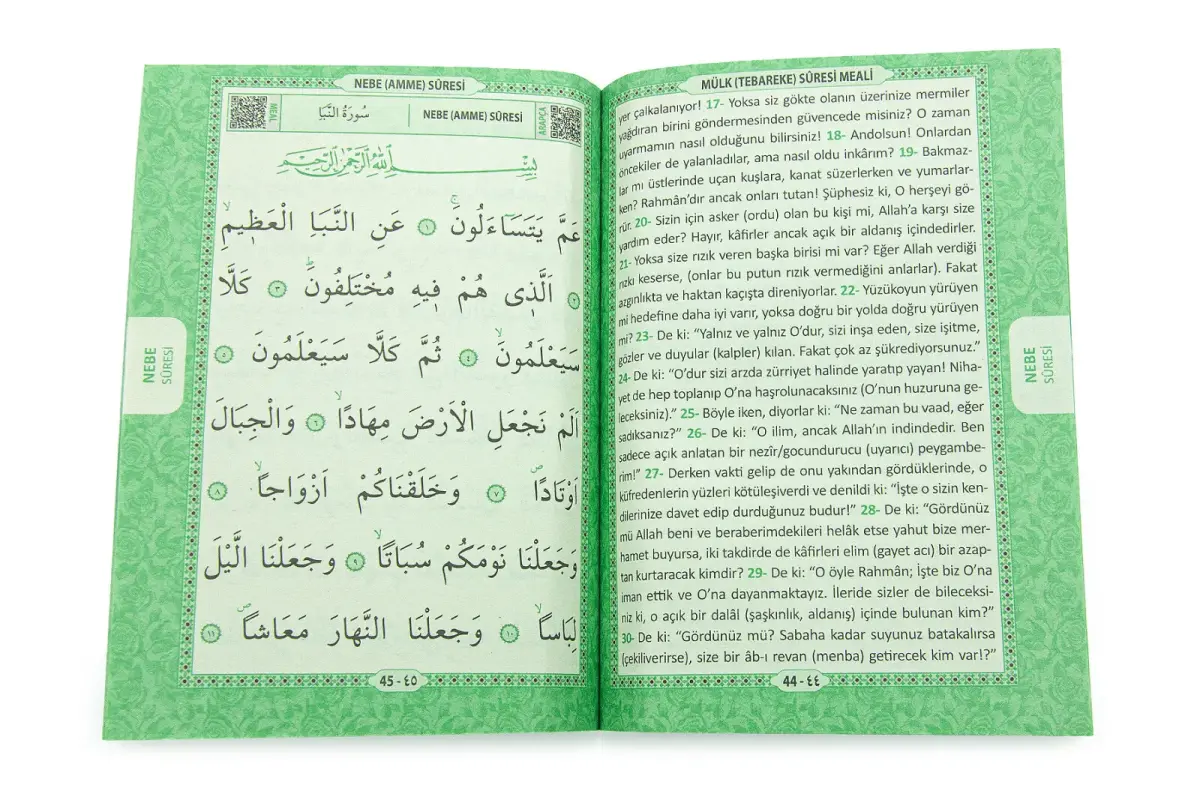 MÜLK (TEBAREKE) SÛRESİ MEALİ
yer çalkalanıyor! 17- Yoksa siz gökte olanın üzerinize mermiler
yağdıran birini göndermesinden güvencede misiniz? O zaman
uyarmamın nasıl olduğunu bilirsiniz! 18- Andolsun! Onlardan
öncekiler de yalanladılar, ama nasıl oldu inkârım? 19- Bakmaz-
lar mı üstlerinde uçan kuşlara, kanat süzerlerken ve yumarlar-
ken? Rahmân’dır ancak onları tutan! Şüphesiz ki, O herşeyi gö-
rür. 20- Sizin için asker (ordu) olan bu kişi mi, Allah’a karşı size
yardım eder? Hayır, kâfirler ancak açık bir aldanış içindedirler.
21- Yoksa size rızık veren başka birisi mi var? Eğer Allah verdiği
rızkı keserse, (onlar bu putun rızık vermediğini anlarlar). Fakat
azgınlıkta ve haktan kaçışta direniyorlar. 22- Yüzükoyun yürüyen
mi hedefine daha iyi varır, yoksa doğru bir yolda doğru yürüyen
mi? 23- De ki: “Yalnız ve yalnız O’dur, sizi inşa eden, size işitme,
gözler ve duyular (kalpler) kılan. Fakat çok az şükrediyorsunuz.”
24- De ki: “O’dur sizi arzda zürriyet halinde yaratıp yayan! Niha-
yet de hep toplanıp O’na haşrolunacaksınız (O’nun huzuruna ge-
leceksiniz).” 25- Böyle iken, diyorlar ki: “Ne zaman bu vaad, eğer
sadıksanız?” 26- De ki: “O ilim, ancak Allah’ın indindedir. Ben
sadece açık anlatan bir nezîr/gocundurucu (uyarıcı) peygambe-
rim!” 27- Derken vakti gelip de onu yakından gördüklerinde, o
küfredenlerin yüzleri kötüleşiverdi ve denildi ki: “İşte o sizin ken-
dilerinize davet edip durduğunuz budur!” 28- De ki: “Gördünüz
mü Allah beni ve beraberimdekileri helâk etse yahut bize mer-
hamet buyursa, iki takdirde de kâfirleri elim (gayet acı) bir azap-
tan kurtaracak kimdir? 29- De ki: “O öyle Rahmân; İşte biz O’na
iman ettik ve O’na dayanmaktayız. İleride sizler de bileceksi-
niz ki, o açık bir dalâl (şaşkınlık, aldanış) içinde bulunan kim?”
30- De ki: “Gördünüz mü? Sabaha kadar suyunuz batakalırsa
(çekiliverirse), size bir âb-ı revan (menba) getirecek kim var!?”
44 - ٤٤
NEBE
SÛRESİ
NEBE (AMME) SÛRESİ
MEAL
سُورَةُ النَّبَأِ
NEBE (AMME) SÛRESİ
ARAPÇA
بِسْمِ اللّٰهِ الرَّحْمٰنِ الرَّحِيمِ
عَمَّ يَتَسَاءَلُونَۚ ﴿١﴾ عَنِ النَّبَأِ الْعَظِيمِۙ
﴿٢﴾ اَلَّذِى هُمْ فِيهِ مُخْتَلِفُونَۜ ﴿٣﴾ كَلَّا
سَيَعْلَمُونَۙ ﴿٤﴾ ثُمَّ كَلَّا سَيَعْلَمُونَ ﴿٥﴾
اَلَمْ نَجْعَلِ الْاَرْضَ مِهَادًاۙ ﴿٦﴾ وَالْجِبَالَ
اَوْتَادًاۖ ﴿٧﴾ وَخَلَقْنَاكُمْ اَزْوَاجًاۙ ﴿٨﴾
وَجَعَلْنَا نَوْمَكُمْ سُبَاتًاۙ ﴿٩﴾ وَجَعَلْنَا الَّيْلَ
لِبَاسًاۙ ﴿١٠﴾ وَجَعَلْنَا النَّهَارَ مَعَاشًاۖ ﴿١١﴾
45 - ٤٥
NEBE
SÛRESİ